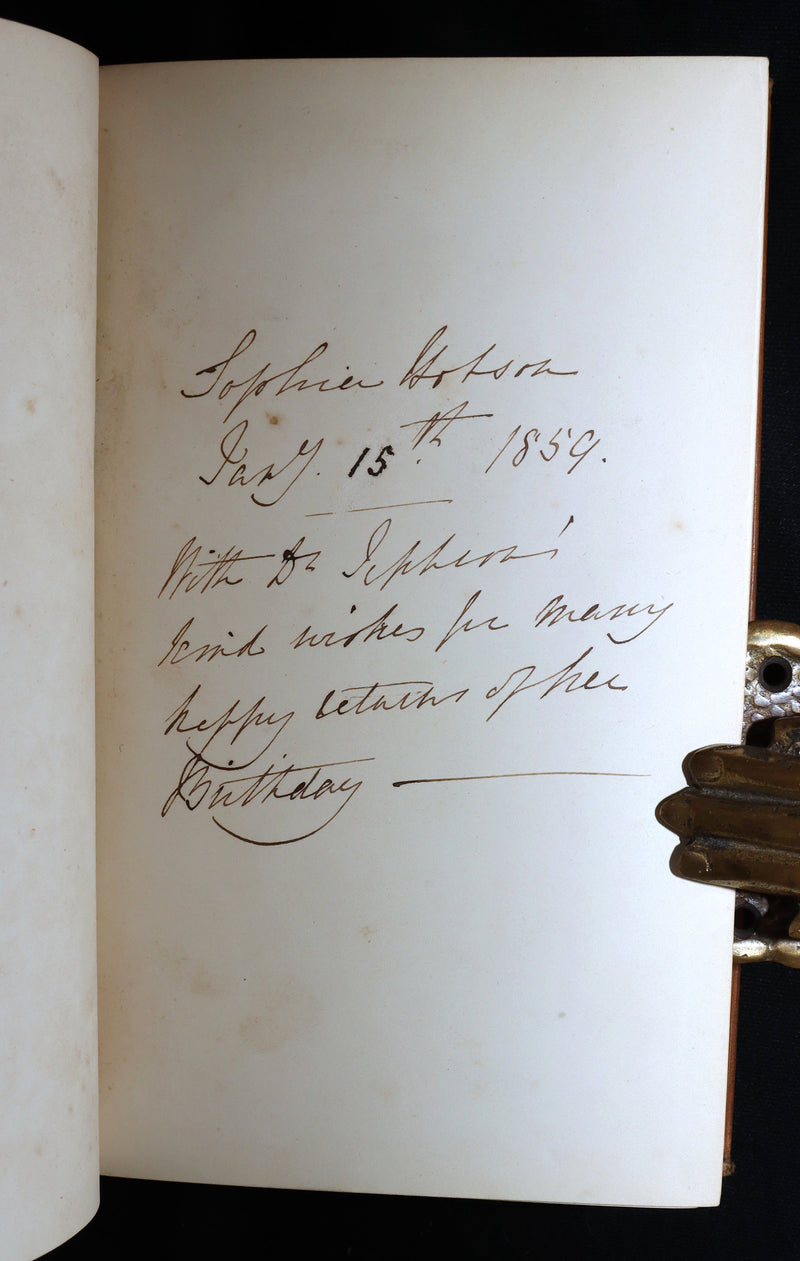 Sophia Hobson
Jany. 15th 1859.
With Dr Jephson's
kind wishes for many
happy returns of her
Birthday